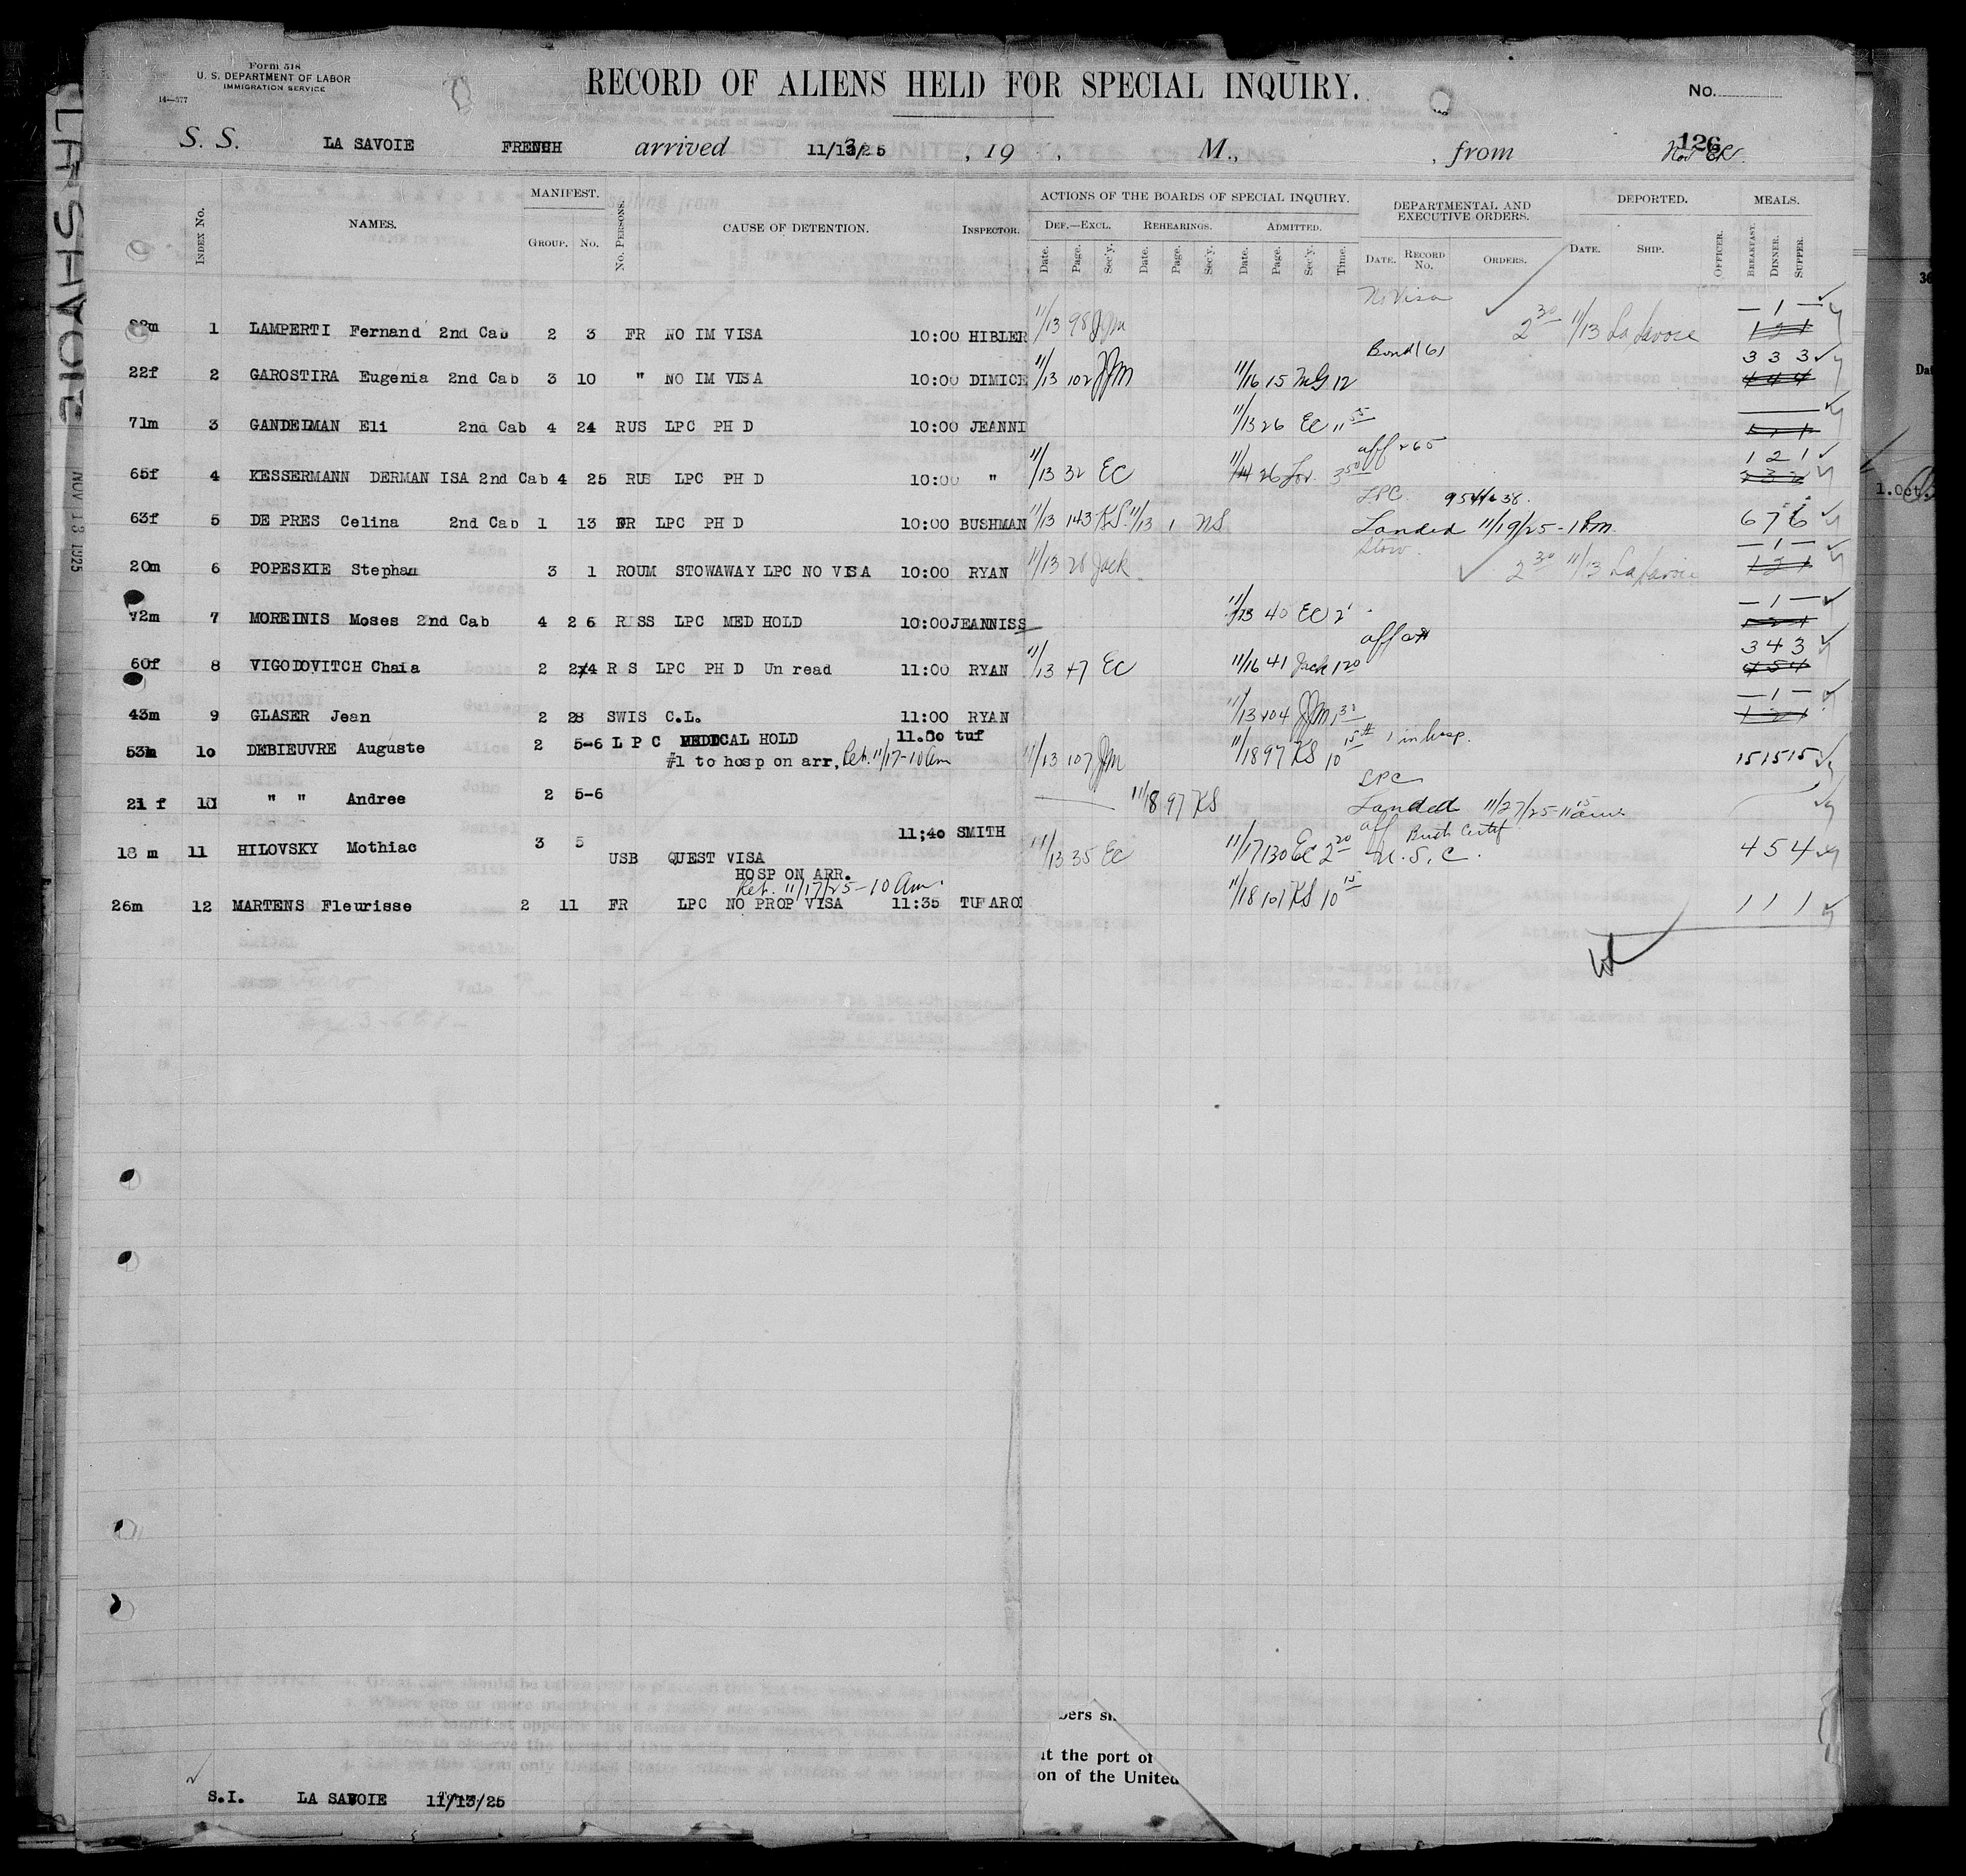 Form 518
U. S. DEPARTMENT OF LABOR
IMMIGRATION SERVICE
14—577
RECORD OF ALIENS HELD FOR SPECIAL INQUIRY.
No.
126
S. S. LA SAVOIE FRENCH arrived 11/13/25 , 19 , M., , from
INDEX No. NAMES. MANIFEST. GROUP. No. No. PERSONS. CAUSE OF DETENTION. INSPECTOR.
ACTIONS OF THE BOARDS OF SPECIAL INQUIRY.
DEF.—EXCL. REHEARINGS. ADMITTED.
Date. Page. Sec'y. Date. Page. Sec'y. Date. Page. Sec'y. Time.
DEPARTMENTAL AND EXECUTIVE ORDERS.
DATE. RECORD No. ORDERS.
DEPORTED.
DATE. SHIP. OFFICER.
MEALS.
BREAKFAST. DINNER. SUPPER.
No Visa
1 LAMPERTI Fernand 2nd Cab 2 3 FR NO IM VISA 10:00 HIBLER 11/13 98 JJM 2 30 11/13 La Savoie — 1 —
Bond
22f 2 GAROSTIRA Eugenia 2nd Cab 3 10 " NO IM VISA 10:00 DIMICE 11/13 102 JJM 11/16 15 McG 12 3 3 3
71m 3 GANDELMAN Eli 2nd Cab 4 24 RUS LPC PH D 10:00 JEANNI 11/13 26 EC 11 15
aff 265
65f 4 KESSERMANN DERMAN ISA 2nd Cab 4 25 RUS LPC PH D 10:00 " 11/13 32 EC 11/14 26 3 50 1 2 1
LPC
63f 5 DE PRES Celina 2nd Cab 1 13 FR LPC PH D 10:00 BUSHMAN 11/13 143 KS 11/13 1 NS Landed 11/19/25 - 1 Pm 6 7 6
Stow.
20m 6 POPESKIE Stephan 3 1 ROUM STOWAWAY LPC NO VISA 10:00 RYAN 11/13 28 Jack 2 30 11/13 La Savoie — 1 —
72m 7 MOREINIS Moses 2nd Cab 4 26 RUSS LPC MED HOLD 10:00 JEANNISS 11/13 40 EC 2 — 1 —
60f 8 VIGODOVITCH Chaia 2 24 R S LPC PH D Un read 11:00 RYAN 11/13 47 EC 11/16 41 Jack 1 20 3 4 3
43m 9 GLASER Jean 2 28 SWIS C.L. 11:00 RYAN 11/13 104 JJM 1 30 — 1 —
53m 10 DEBIEUVRE Auguste 2 5-6 L P C MEDICAL HOLD 11.30 tuf 11/13 107 JJM 11/18 97 KS 10 15 # 1 in hosp. 15 15 15
#1 to hosp on arr, Ret. 11/17-10 am
LPC
21 f 10 " " Andree 2 5-6 11/18 97 KS Landed 11/27/25 - 11 15 am
aff Birth Certif
18 m 11 HILOVSKY Mothiac 3 5 USB QUEST VISA 11;40 SMITH 11/13 35 EC 11/17 130 EC 2 20 U.S.C. 4 5 4
HOSP ON ARR.
Ret. 11/17/25-10 am.
26m 12 MARTENS Fleurisse 2 11 FR LPC NO PROP VISA 11:35 TUFARO 11/18 101 KS 10 15 1 1 1
LA SAVOIE
NOV 13 1925
bers
at the port of
on of the United
S.I. LA SAVOIE 11/13/25